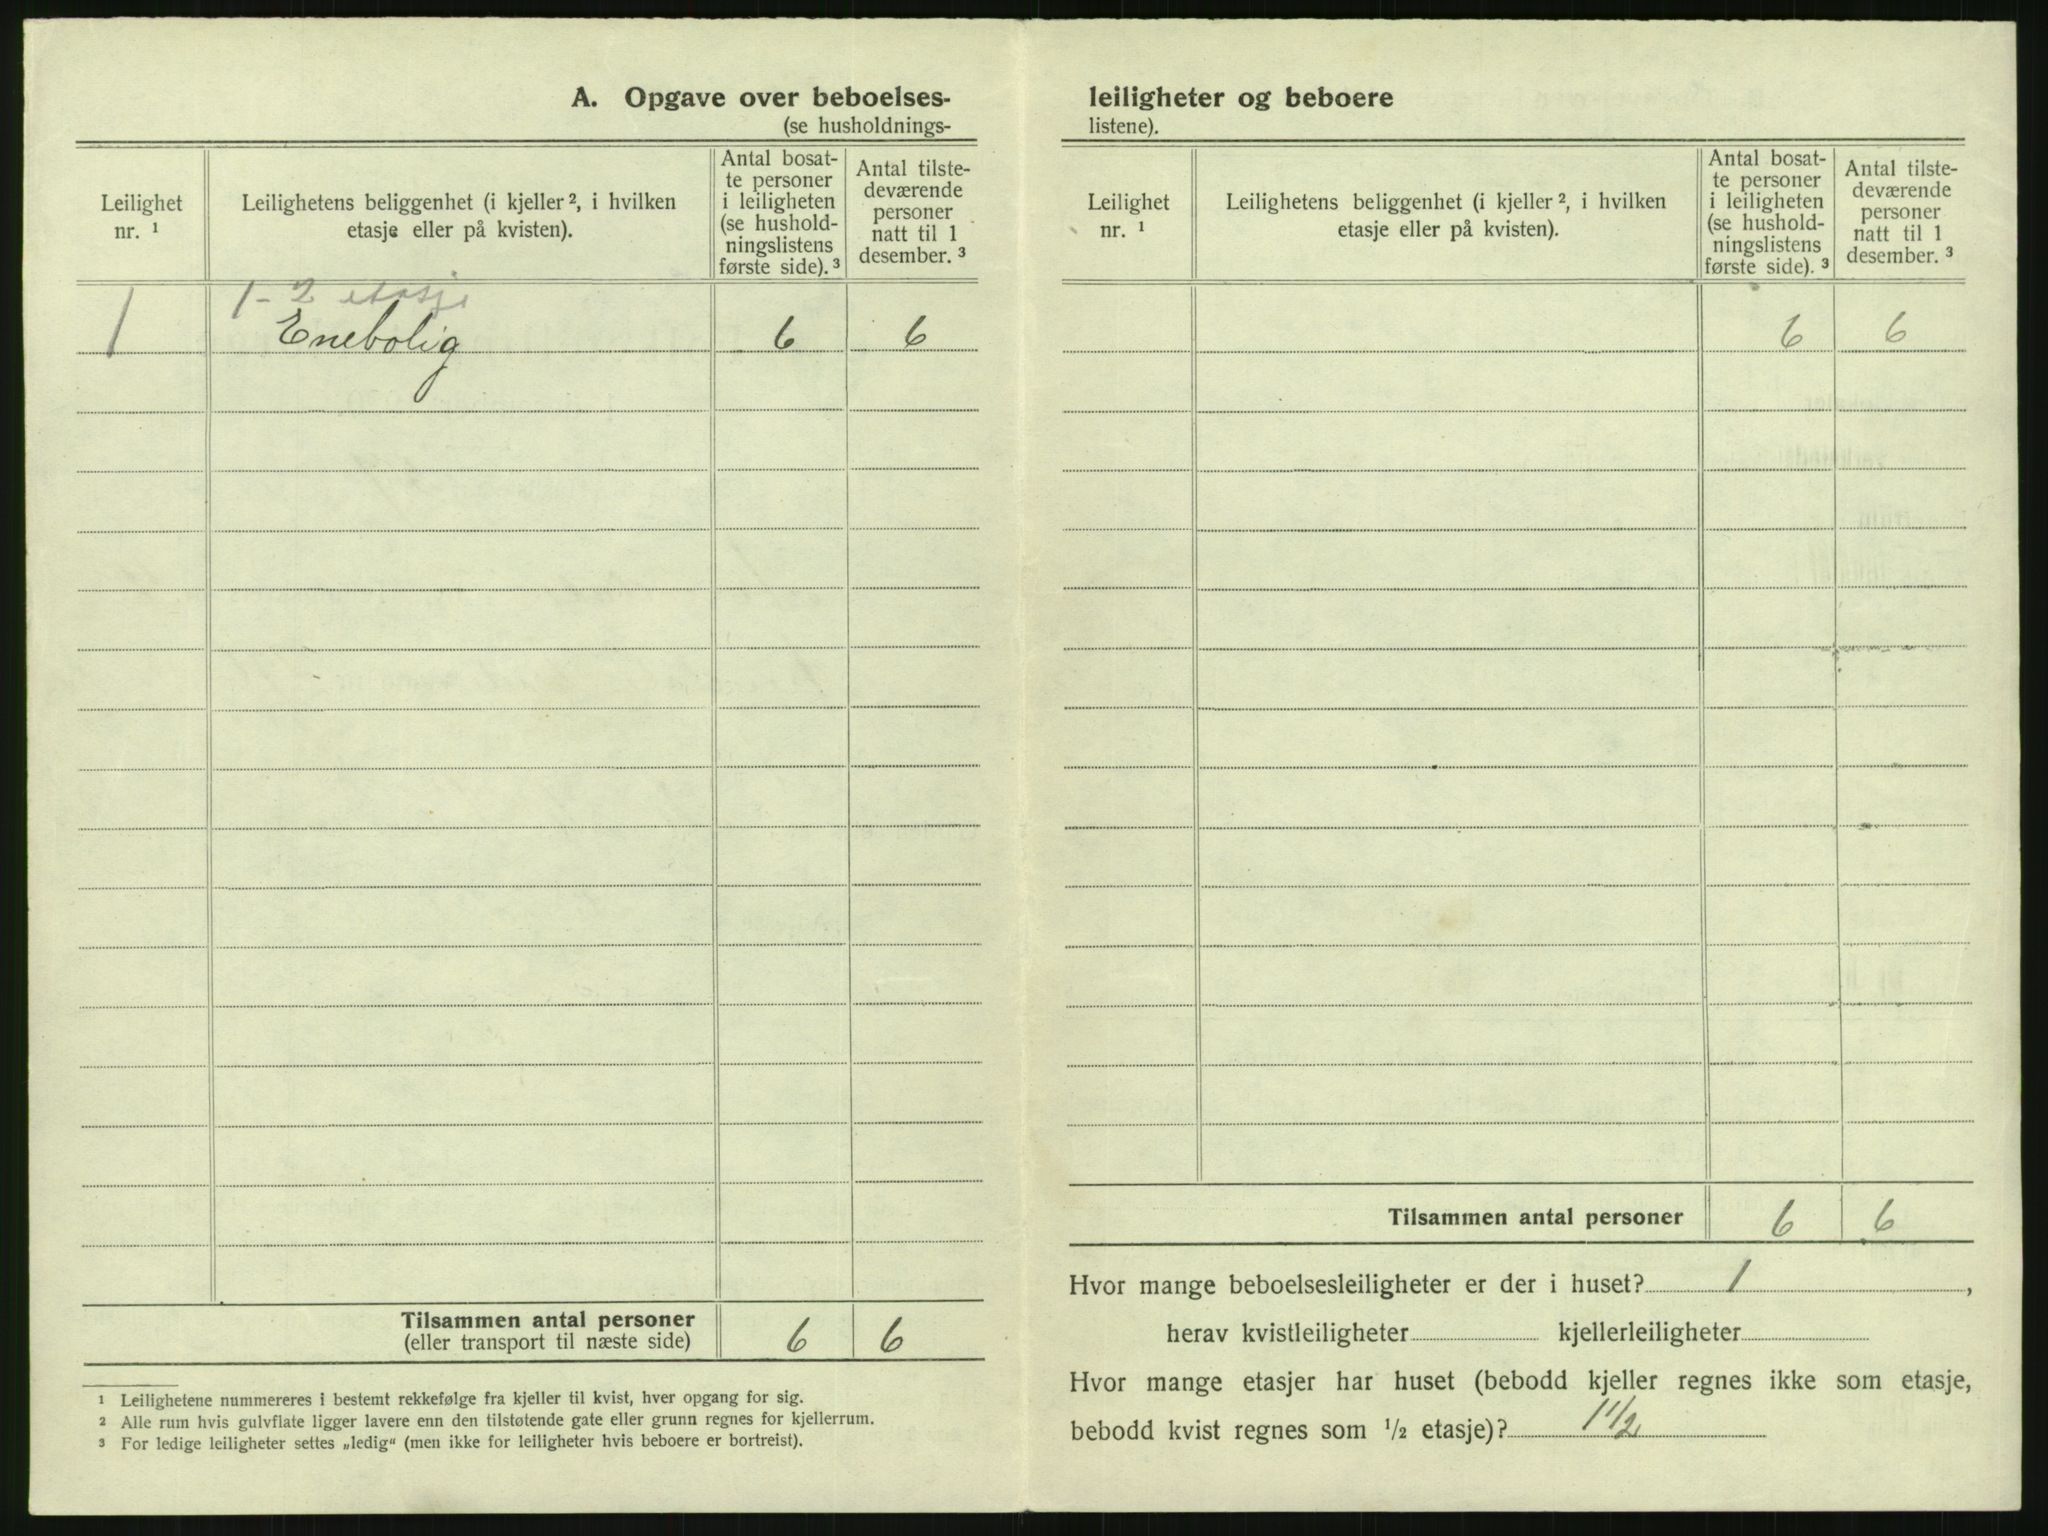 A. Opgave over beboelses-
(se husholdnings-
Leilighet
nr. ¹
Leilighetens beliggenhet (i kjeller ², i hvilken
etasje eller på kvisten).
Antal bosat-
te personer
i leiligheten
(se hushold-
ningslistens
første side). ³
Antal tilste-
deværende
personer
natt til 1
desember. ³
1-2 etasje
1 Enebolig 6 6
Tilsammen antal personer
(eller transport til næste side) 6 6
¹ Leilighetene nummereres i bestemt rekkefølge fra kjeller til kvist, hver opgang for sig.
² Alle rum hvis gulvflate ligger lavere enn den tilstøtende gate eller grunn regnes for kjellerrum.
³ For ledige leiligheter settes „ledig“ (men ikke for leiligheter hvis beboere er bortreist).
leiligheter og beboere
listene).
Leilighet
nr. ¹
Leilighetens beliggenhet (i kjeller ², i hvilken
etasje eller på kvisten).
Antal bosat-
te personer
i leiligheten
(se hushold-
ningslistens
første side). ³
Antal tilste-
deværende
personer
natt til 1
desember. ³
6 6
Tilsammen antal personer 6 6
Hvor mange beboelsesleiligheter er der i huset? 1,
herav kvistleiligheter kjellerleiligheter
Hvor mange etasjer har huset (bebodd kjeller regnes ikke som etasje,
bebodd kvist regnes som ½ etasje)? 1 1/2